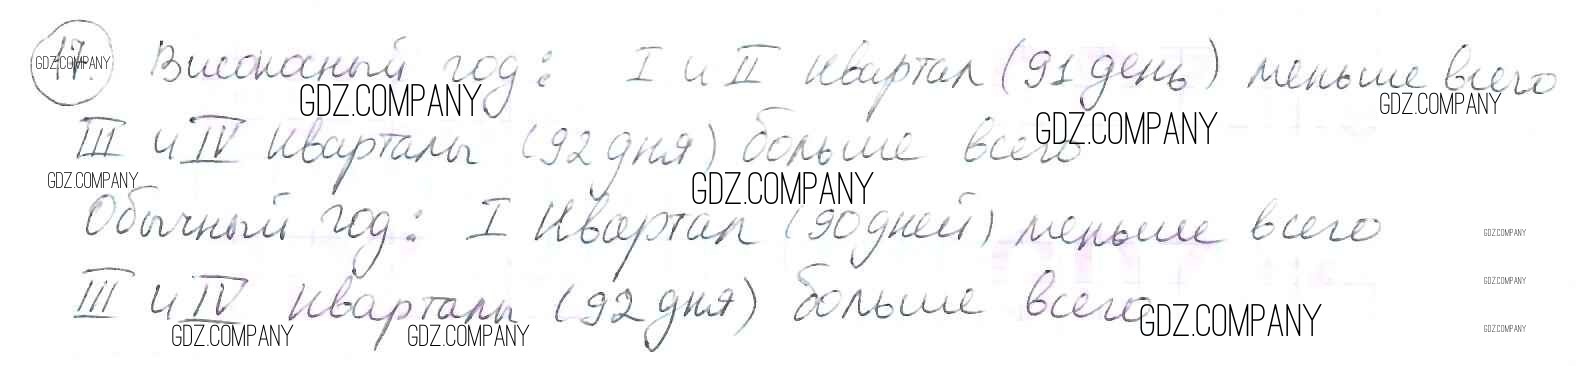 17. Високосный год: I и II квартал (91 день) меньше всего
III и IV кварталы (92 дня) больше всего
Обычный год: I квартал (90 дней) меньше всего
III и IV кварталы (92 дня) больше всего
GDZ.COMPANY
GDZ.COMPANY
GDZ.COMPANY
GDZ.COMPANY
GDZ.COMPANY
GDZ.COMPANY
GDZ.COMPANY
GDZ.COMPANY
GDZ.COMPANY
GDZ.COMPANY
GDZ.COMPANY
GDZ.COMPANY